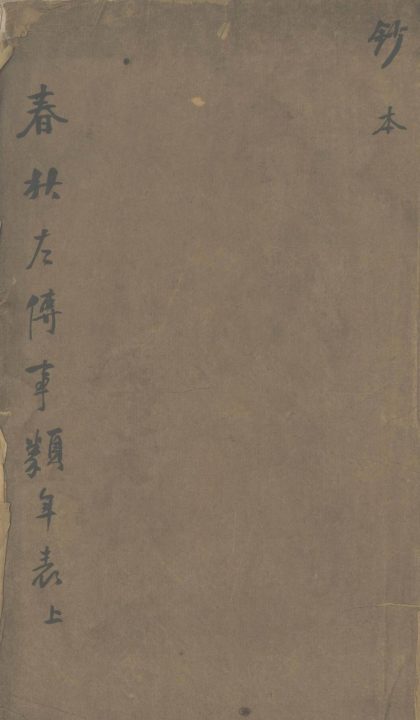 鈔本
春秋左傳事類年表上